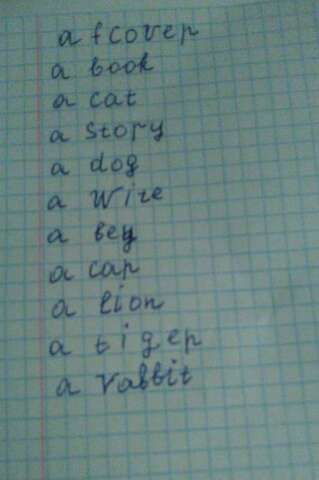 a fcover
a book
a cat
a story
a dog
a wite
a bey
a cap
a lion
a tiger
a rabbit